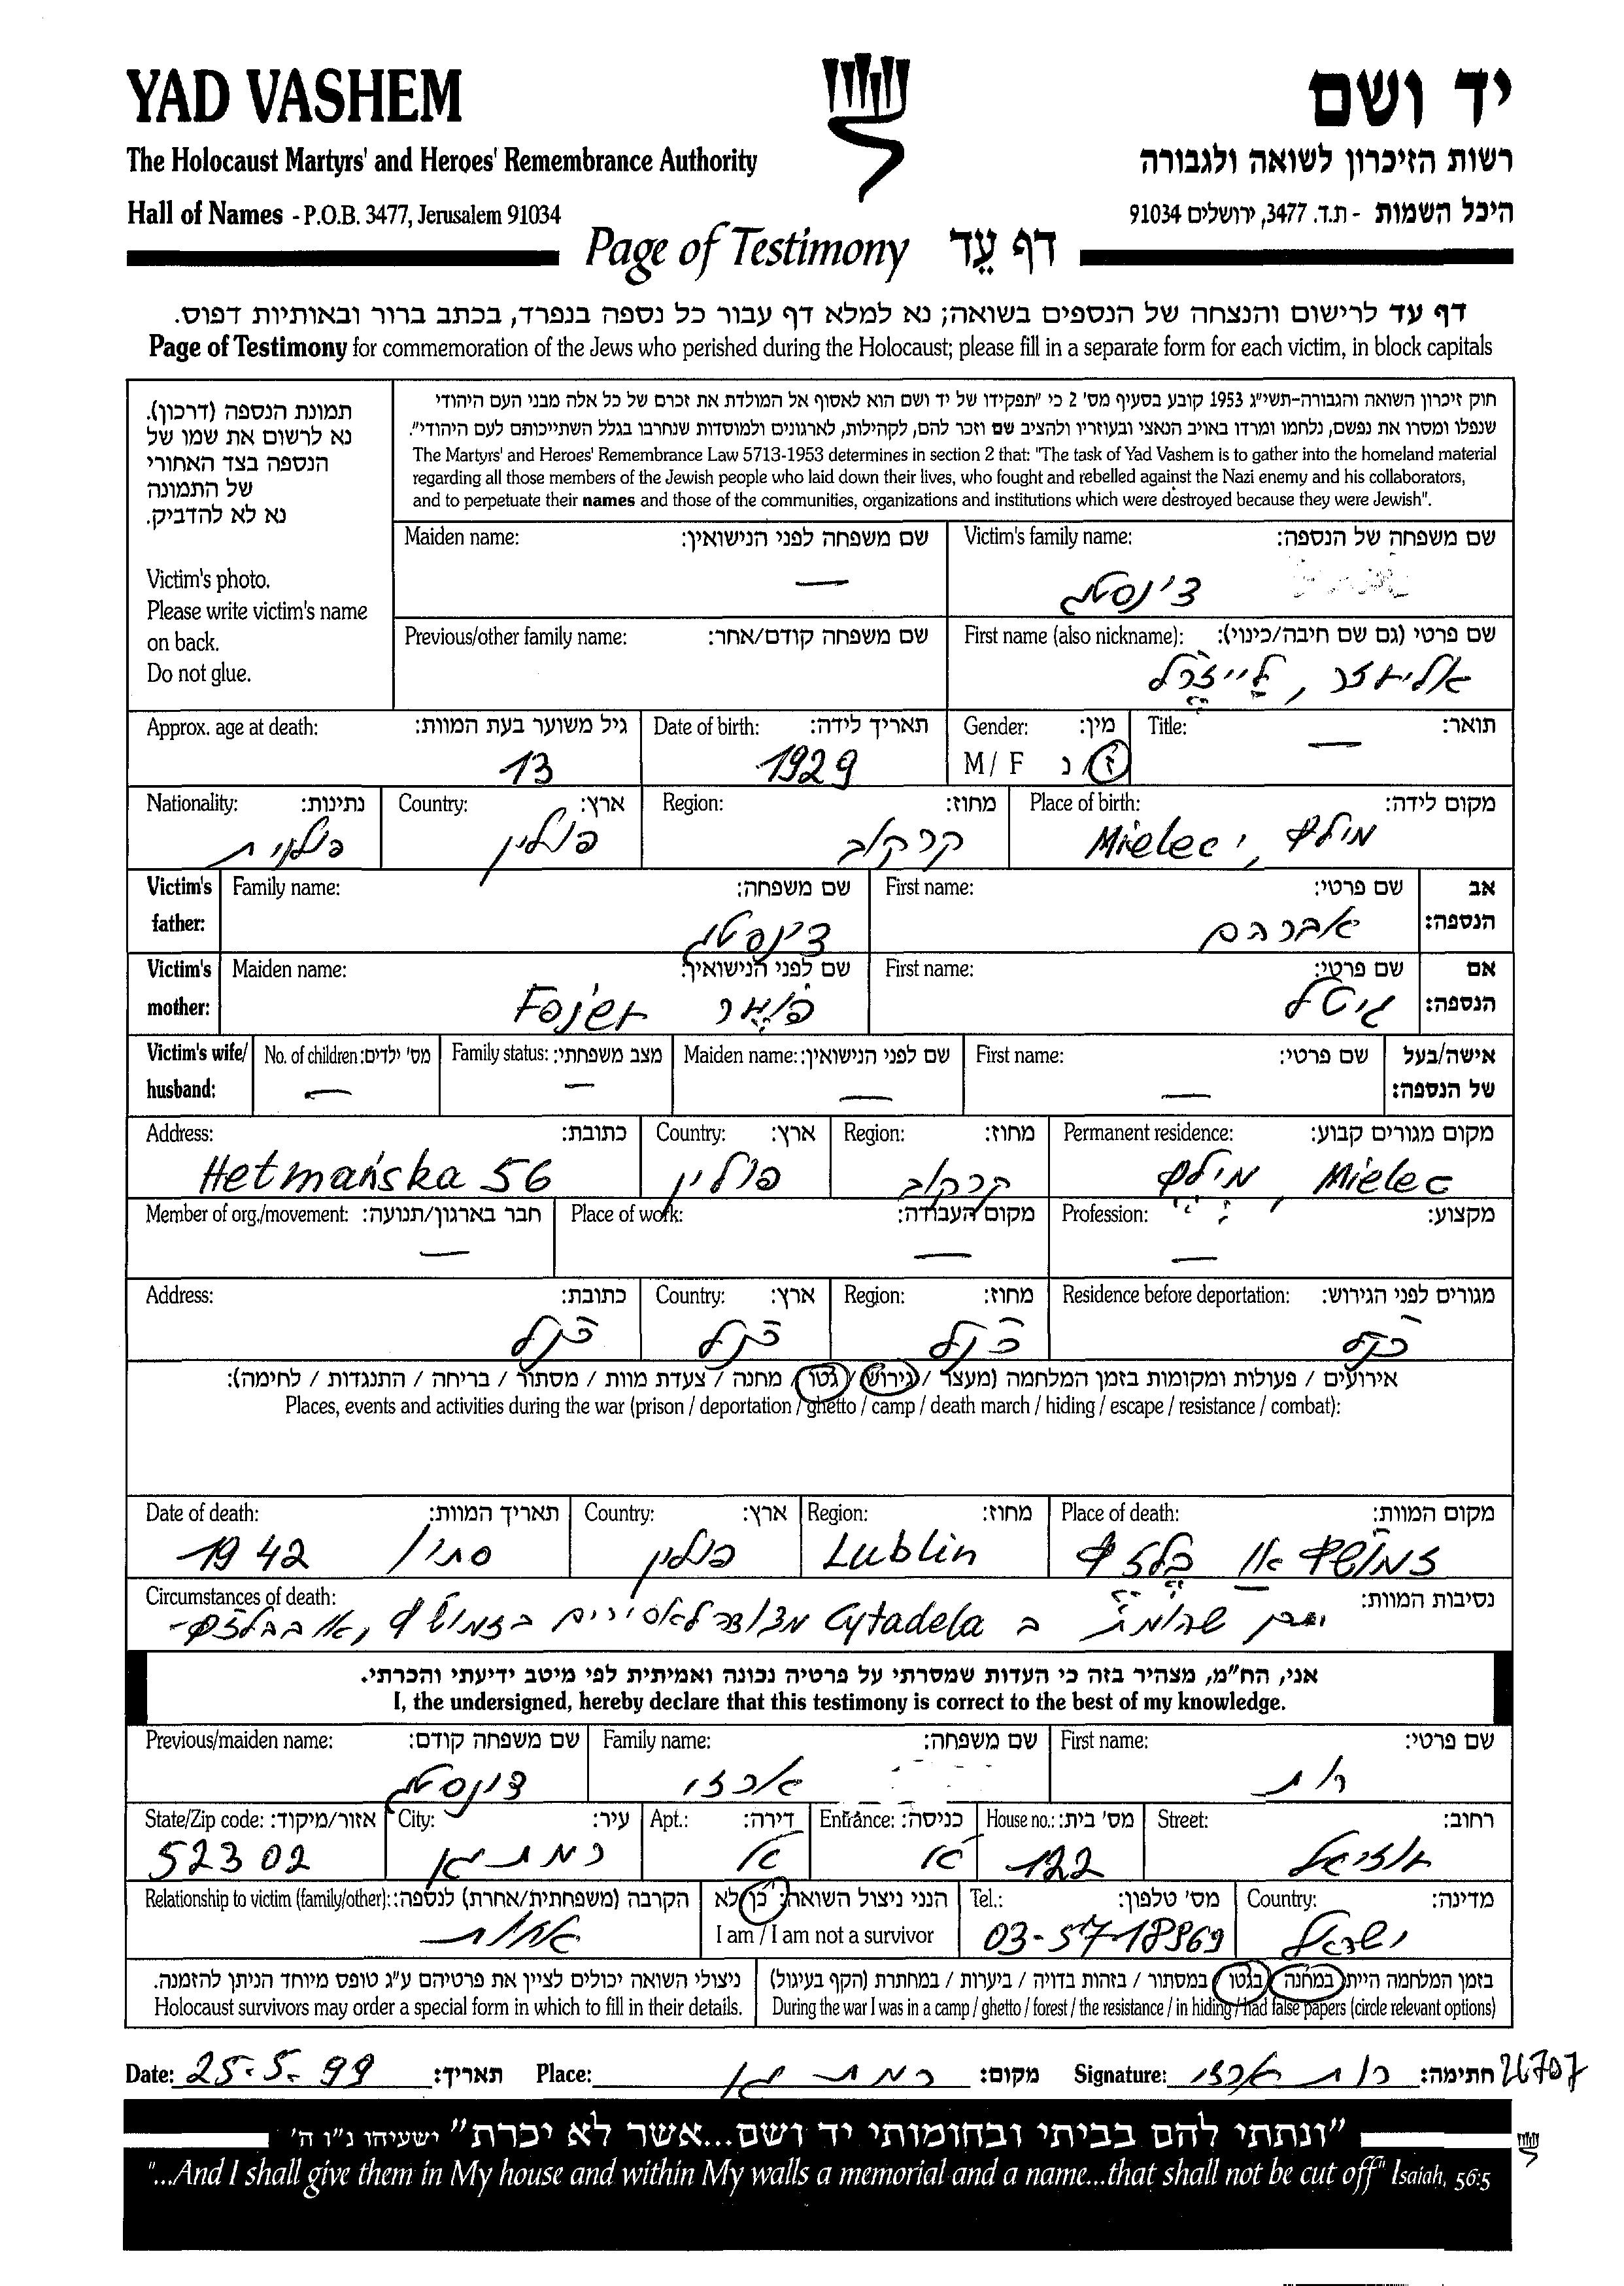 YAD VASHEM
יד ושם
The Holocaust Martyrs' and Heroes' Remembrance Authority
רשות הזיכרון לשואה ולגבורה
Hall of Names - P.O.B. 3477, Jerusalem 91034
היכל השמות - ת.ד. 3477, ירושלים 91034
Page of Testimony דף עֵד
דף עד לרישום והנצחה של הנספים בשואה; נא למלא דף עבור כל נספה בנפרד, בכתב ברור ובאותיות דפוס.
Page of Testimony for commemoration of the Jews who perished during the Holocaust; please fill in a separate form for each victim, in block capitals
תמונת הנספה (דרכון).
נא לרשום את שמו של
הנספה בצד האחורי
של התמונה
נא לא להדביק.
Victim's photo.
Please write victim's name
on back.
Do not glue.
חוק זיכרון השואה והגבורה-תשי"ג 1953 קובע בסעיף מס' 2 כי "תפקידו של יד ושם הוא לאסוף אל המולדת את זכרם של כל אלה מבני העם היהודי
שנפלו ומסרו את נפשם, נלחמו ומרדו באויב הנאצי ובעוזריו ולהציב שם וזכר להם, לקהילות, לארגונים ולמוסדות שנחרבו בגלל השתייכותם לעם היהודי".
The Martyrs' and Heroes' Remembrance Law 5713-1953 determines in section 2 that: "The task of Yad Vashem is to gather into the homeland material
regarding all those members of the Jewish people who laid down their lives, who fought and rebelled against the Nazi enemy and his collaborators,
and to perpetuate their names and those of the communities, organizations and institutions which were destroyed because they were Jewish".
Victim's family name: שם משפחה של הנספה:
צ'ינסטג
Maiden name: שם משפחה לפני הנישואין:
—
First name (also nickname): שם פרטי (גם שם חיבה/כינוי):
אליעזר, לייזרל
Previous/other family name: שם משפחה קודם/אחר:
Title: תואר:
—
Gender: מין:
M / F ז / נ
Date of birth: תאריך לידה:
1929
Approx. age at death: גיל משוער בעת המוות:
13
Place of birth: מקום לידה:
מילץ, Mielec
Region: מחוז:
קרקוב
Country: ארץ:
פולין
Nationality: נתינות:
פולנית
Victim's father: אב הנספה:
First name: שם פרטי:
אברהם
Family name: שם משפחה:
צינסטג
Victim's mother: אם הנספה:
First name: שם פרטי:
גיטל
Maiden name: שם לפני הנישואין:
Victim's wife/ husband: אישה/בעל של הנספה:
First name: שם פרטי:
—
Maiden name: שם לפני הנישואין:
—
Family status: מצב משפחתי:
—
No. of children: מס' ילדים:
—
Permanent residence: מקום מגורים קבוע:
Mielec מילץ
Region: מחוז:
קרקוב
Country: ארץ:
פולין
Address: כתובת:
Hetmańska 56
Profession: מקצוע:
—
Place of work: מקום העבודה:
—
Member of org./movement: חבר בארגון/תנועה:
—
Residence before deportation: מגורים לפני הגירוש:
כנ"ל
Region: מחוז:
כנ"ל
Country: ארץ:
כנ"ל
Address: כתובת:
כנ"ל
אירועים / פעולות ומקומות בזמן המלחמה (מעצר / גירוש / גטו / מחנה / צעדת מוות / מסתור / בריחה / התנגדות / לחימה):
Places, events and activities during the war (prison / deportation / ghetto / camp / death march / hiding / escape / resistance / combat):
Place of death: מקום המוות:
זמושץ או בלזץ
Region: מחוז:
Lublin
Country: ארץ:
פולין
Date of death: תאריך המוות:
סתיו 1942
Circumstances of death: נסיבות המוות:
ב Cytadela מצודה לאסירים בזמושץ, או בבלזץ
אני, הח"מ, מצהיר בזה כי העדות שמסרתי על פרטיה נכונה ואמיתית לפי מיטב ידיעתי והכרתי.
I, the undersigned, hereby declare that this testimony is correct to the best of my knowledge.
First name: שם פרטי:
רות
Family name: שם משפחה:
ארזי
Previous/maiden name: שם משפחה קודם:
צינסטג
Street: רחוב:
עוזיאל
House no.: מס' בית:
122
Entrance: כניסה:
א'
Apt.: דירה:
א
City: עיר:
רמת גן
State/Zip code: אזור/מיקוד:
52302
Country: מדינה:
ישראל
Tel.: מס' טלפון:
03-5718969
הנני ניצול השואה: כן לא
I am / I am not a survivor
Relationship to victim (family/other): הקרבה (משפחתית/אחרת) לנספה:
אחות
בזמן המלחמה היית במחנה / בגטו / במסתור / בזהות בדויה / ביערות / במחתרת (הקף בעיגול)
During the war I was in a camp / ghetto / forest / the resistance / in hiding / had false papers (circle relevant options)
ניצולי השואה יכולים לציין את פרטיהם ע"ג טופס מיוחד הניתן להזמנה.
Holocaust survivors may order a special form in which to fill in their details.
Date: 25.5.99 תאריך: Place: רמת גן מקום: Signature: רות ארזי חתימה:
"ונתתי להם בביתי ובחומותי יד ושם...אשר לא יכרת" ישעיהו נ"ו ה'
"...And I shall give them in My house and within My walls a memorial and a name...that shall not be cut off" Isaiah, 56:5